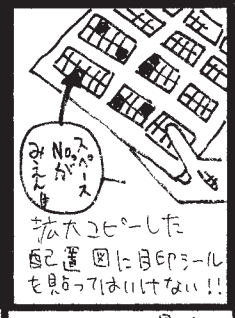 スペース
No.が
みえんɠ
拡大コピーした
配置図に目印シール
を貼ってはいけない!!